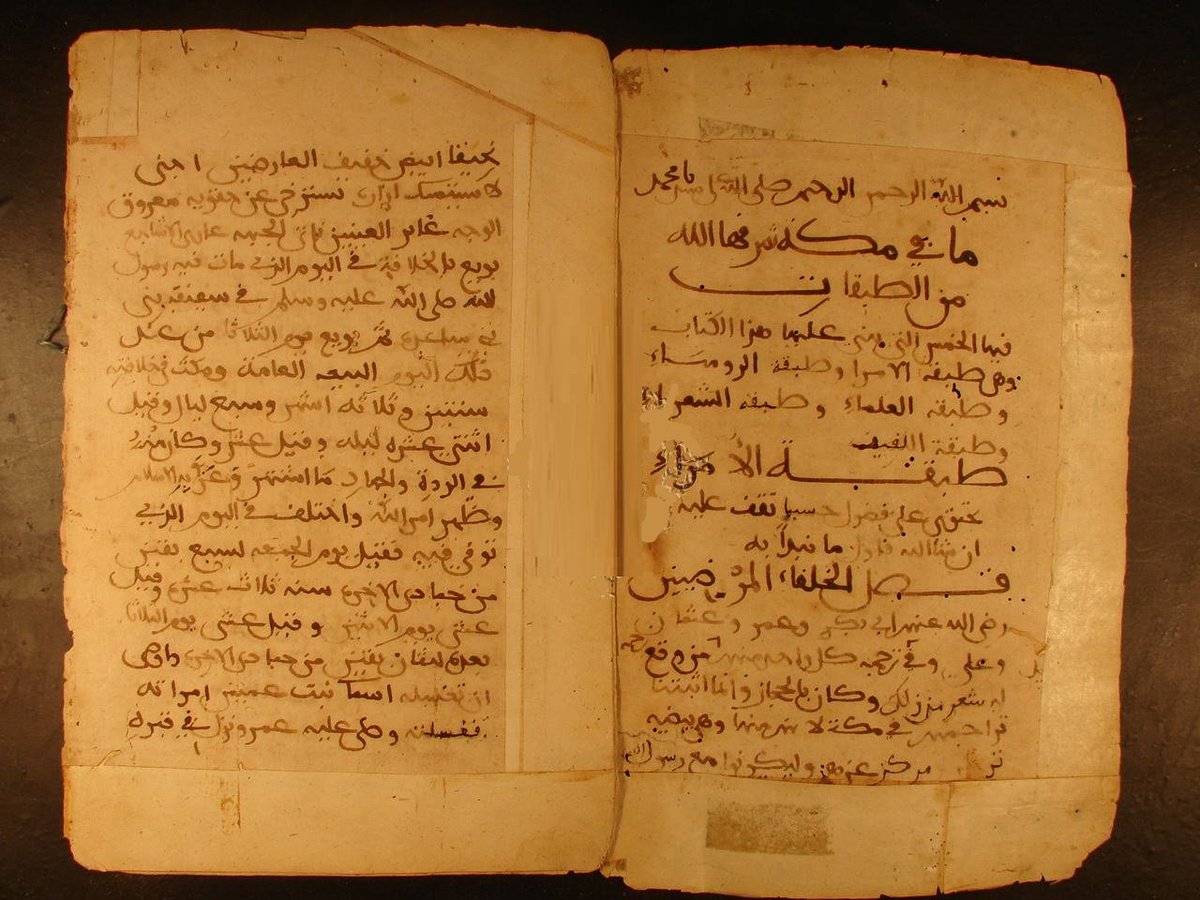 بسم الله الرحمن الرحيم صلى الله على سيدنا محمد
ما في مكة شرفها الله
من الطبقات
فيها الخمس التي بني عليها هذا الكتاب
وهي طبقة الامرا وطبقة الرومساء
وطبقة العلماء وطبقة الشعراء
وطبقة اللفيف
طبقة الأمراء
تحتوي على فصول حسبما تقف عليه
ان شا الله فاول ما نبدأ به
فصل الخلفاء المرضيين
رضي الله عنهم ابي بكر وعمر وعثمان
وعلي وفي ترجمة كل واحد منهم من وقع
له شعر من ذلك وكان بالحجاز وانما اثبتنا
تراجمهم في مكة لا نهم منها وهي بيضة
مركز عزهم وليكونوا مع رسول الله
نحيفا ابيض خفيف العارضين احنى
لا يستمسك ازاره يسترخي عن حقويه معروق
الوجه غائر العينين ناتئ الجبهة عاري الاشاجع
بويع بالخلافة في اليوم الذي مات فيه رسول
الله صلى الله عليه وسلم في سقيفة بني
بني ساعدة ثم بويع يوم الثلاثا من غد
ذلك اليوم البيعه العامة ومكث في خلافته
سنتين وثلاثة اشهر وسبع ليال وقيل
اثنتي عشره ليله وقيل عشر وكان منه
في الردة والجهاد ما اشتهر وعز به الاسلام
وظهر امر الله واختلف في اليوم الذي
توفي فيه فقيل يوم الجمعه لسبع بقين
من جمادى الاخرى سنه ثلاث عشره وقيل
عشى يوم الاثنين وقيل عشى يوم الثلاثا
لثمان بقين من جمادى الاخرى واوصى
ان تغسله اسما بنت عميس امراته
فغسلته وصلى عليه عمر ونزل في قبره